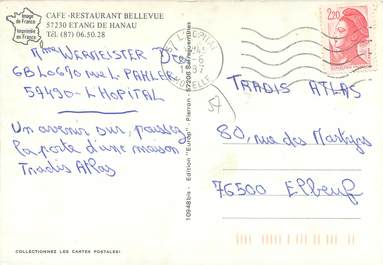 Image
de France
Imprimée
en France
CAFE - RESTAURANT BELLEVUE
57230 ETANG DE HANAU
Tél. (87) 06.50.28
Mme WERMEISTER
6B LOG90 rue L. PAHLER
57490 - L'HOPITAL
Un avenir sur, poussez
la porte d'une maison
Tradis Atlas
COLLECTIONNEZ LES CARTES POSTALES!
10948bis - Edition "Europ" - Pierron - 57206 Sarreguemines
57 L'HOPITAL
MOSELLE
2,20
57
TRADIS ATLAS
80, rue des Martyrs
76500 Elbeuf